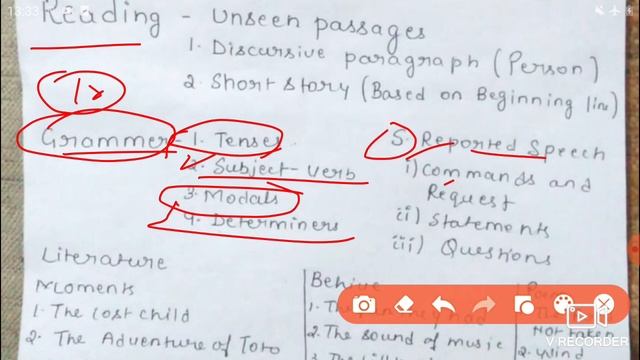 13:33
Reading - Unseen passages
1. Discursive paragraph (Person)
2. Short story (Based on Beginning line)
10
Grammer - 1. Tenses
2. Subject-Verb
3. Modals
4. Determiners
5. Reported Speech
i) Commands and
Request
ii) Statements
iii) Questions
Literature
Moments
1. The Lost child
2. The Adventure of Toto
Behive
1. The
2. The sound of music
Not taken
2. Wind
V RECORDER